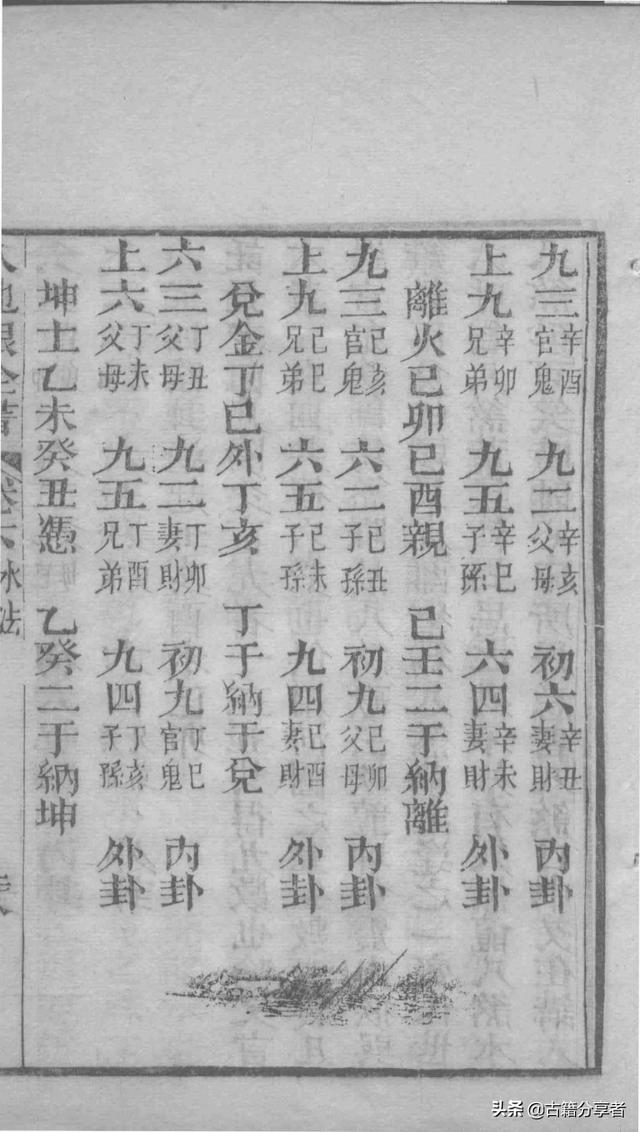 九三辛酉官鬼 九二辛亥父母 初六辛丑妻財 內卦
上九辛卯兄弟 九五辛巳子孫 六四辛未妻財 外卦
離火已卯已酉親 已壬二干納離
九三已亥官鬼 六二已丑子孫 初九已卯父母 內卦
上九已巳兄弟 六五已未子孫 九四已酉妻財 外卦
兌金丁巳外丁亥 丁干納于兌
六三丁丑父母 九二丁卯妻財 初九丁巳官鬼 內卦
上六丁未父母 九五丁酉兄弟 九四丁亥子孫 外卦
坤土乙未癸丑憑 乙癸二干納坤
地眼全書 卷六 法
头条 @古籍分享者